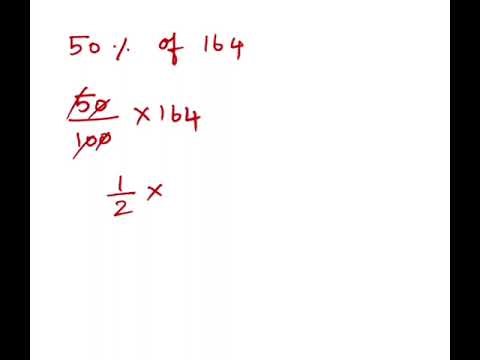 50% of 164
50/100 × 164
1/2 ×